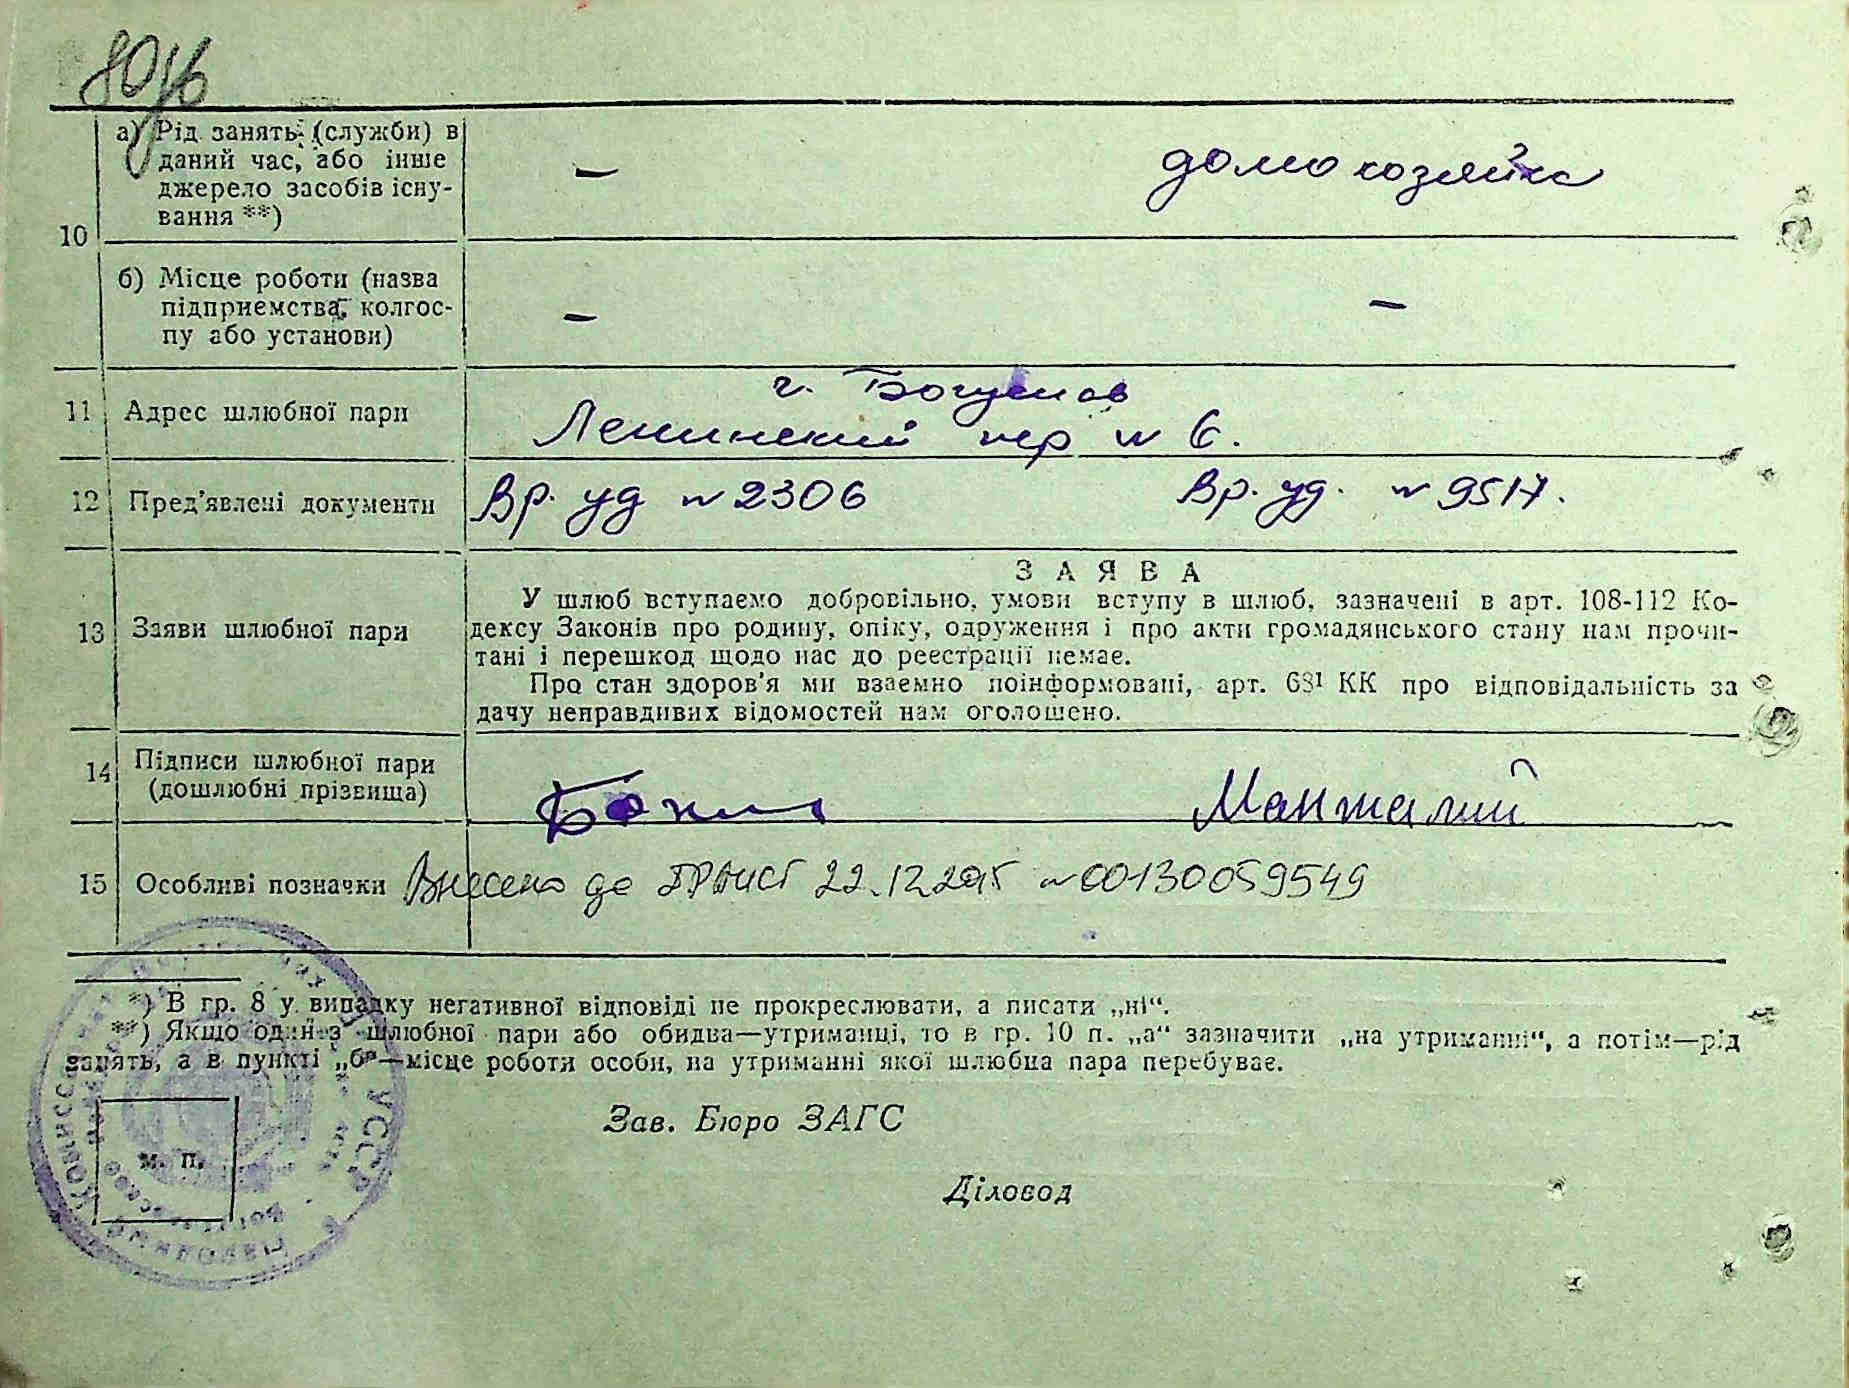 80
а) Рід занять (служби) в
даний час, або інше
джерело засобів існу-
вання **)
—
домохозяйка
10
б) Місце роботи (назва
підприємства, колгос-
пу або установи)
—
—
11 Адрес шлюбної пари
г.
Ленинский пер № 6.
12 Пред'явлені документи Вр. уд №2306 Вр. уд. №9517.
З А Я В А
У шлюб вступаємо добровільно, умови вступу в шлюб, зазначені в арт. 108-112 Ко-
13 Заяви шлюбної пари дексу Законів про родину, опіку, одруження і про акти громадянського стану нам прочи-
тані і перешкод щодо нас до реєстрації немає.
Про стан здоров'я ми взаємно поінформовані, арт. 68¹ КК про відповідальність за
дачу неправдивих відомостей нам оголошено.
14 Підписи шлюбної пари
(дошлюбні прізвища)
15 Особливі позначки Внесено до 22.12. №00130059549
*) В гр. 8 у випадку негативної відповіді не прокреслювати, а писати „ні“.
**) Якщо один з шлюбної пари або обидва—утриманці, то в гр. 10 п. „а“ зазначити „на утриманні“, а потім—рід
занять, а в пункті „б“—місце роботи особи, на утриманні якої шлюбна пара перебуває.
Зав. Бюро ЗАГС
м. п.
Діловод
УССР